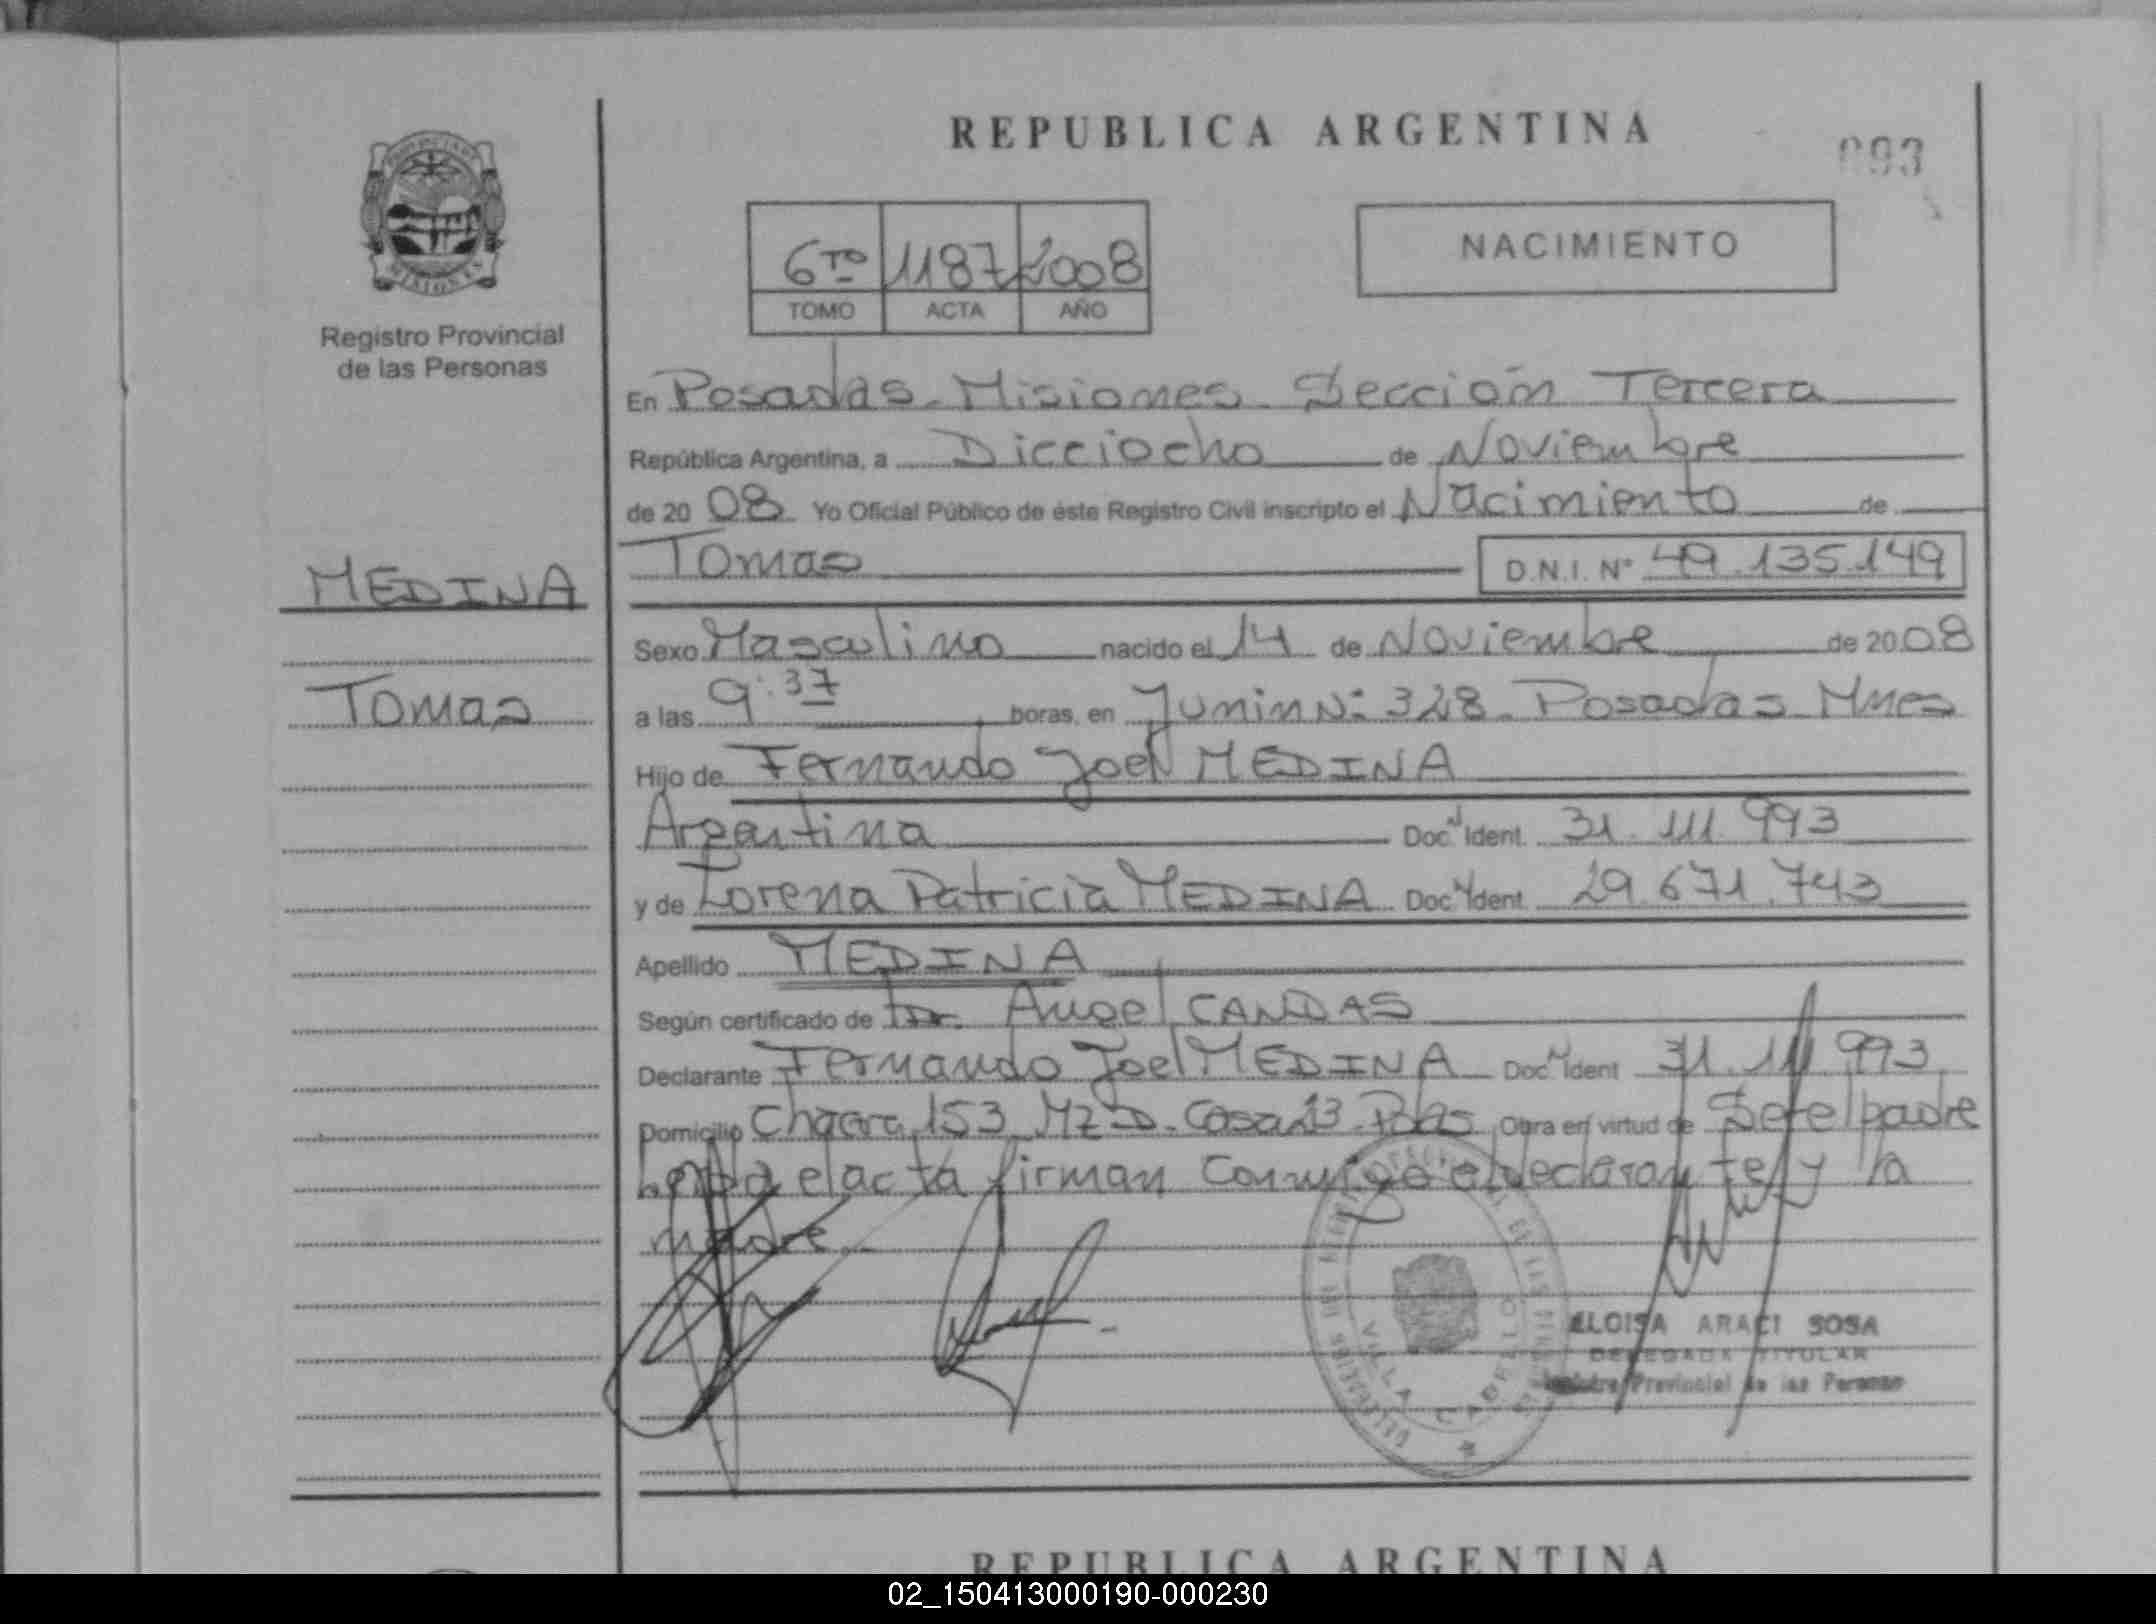 REPUBLICA ARGENTINA
093
6TO 1187 2008
TOMO ACTA AÑO
NACIMIENTO
Registro Provincial
de las Personas
MEDINA
Tomas
En Posadas - Misiones - Sección Tercera
República Argentina, a Dieciocho de Noviembre
de 20 08 Yo Oficial Público de éste Registro Civil inscripto el Nacimiento de
Tomas D.N.I. Nº 49.135.149
Sexo Masculino nacido el 14 de Noviembre de 20 08
a las 9:37 horas, en Junin Nº 328 - Posadas Mnes
Hijo de Fernando Joel MEDINA
Argentina Doc. Ident. 31.111.993
y de Lorena Patricia MEDINA Doc. Ident. 29.671.743
Apellido MEDINA
Según certificado de Dr. Angel CANDAS
Declarante Fernando Joel MEDINA Doc. Ident 31.111.993
Domicilio Chacra 153 Mz D - Casa 23 - Pdas Obra en virtud de Ser el padre
Leida el acta firman Conmigo el declarante y la
madre.-
VILLA CABELLO
ELOISA ARACI SOSA
DELEGADA TITULAR
Registro Provincial de las Personas
REPUBLICA ARGENTINA
02_150413000190-000230